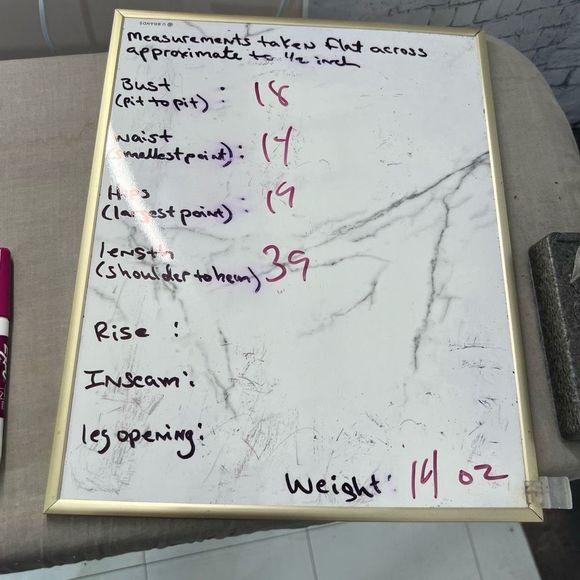 U BRANDS
measurements taken flat across
approximate to 1/2 inch
Bust
(pit to pit) : 18
waist
(smallest point) : 14
Hips
(largest point) : 19
length
(shoulder to hem) 39
Rise :
Inseam :
leg opening :
Weight : 14 oz